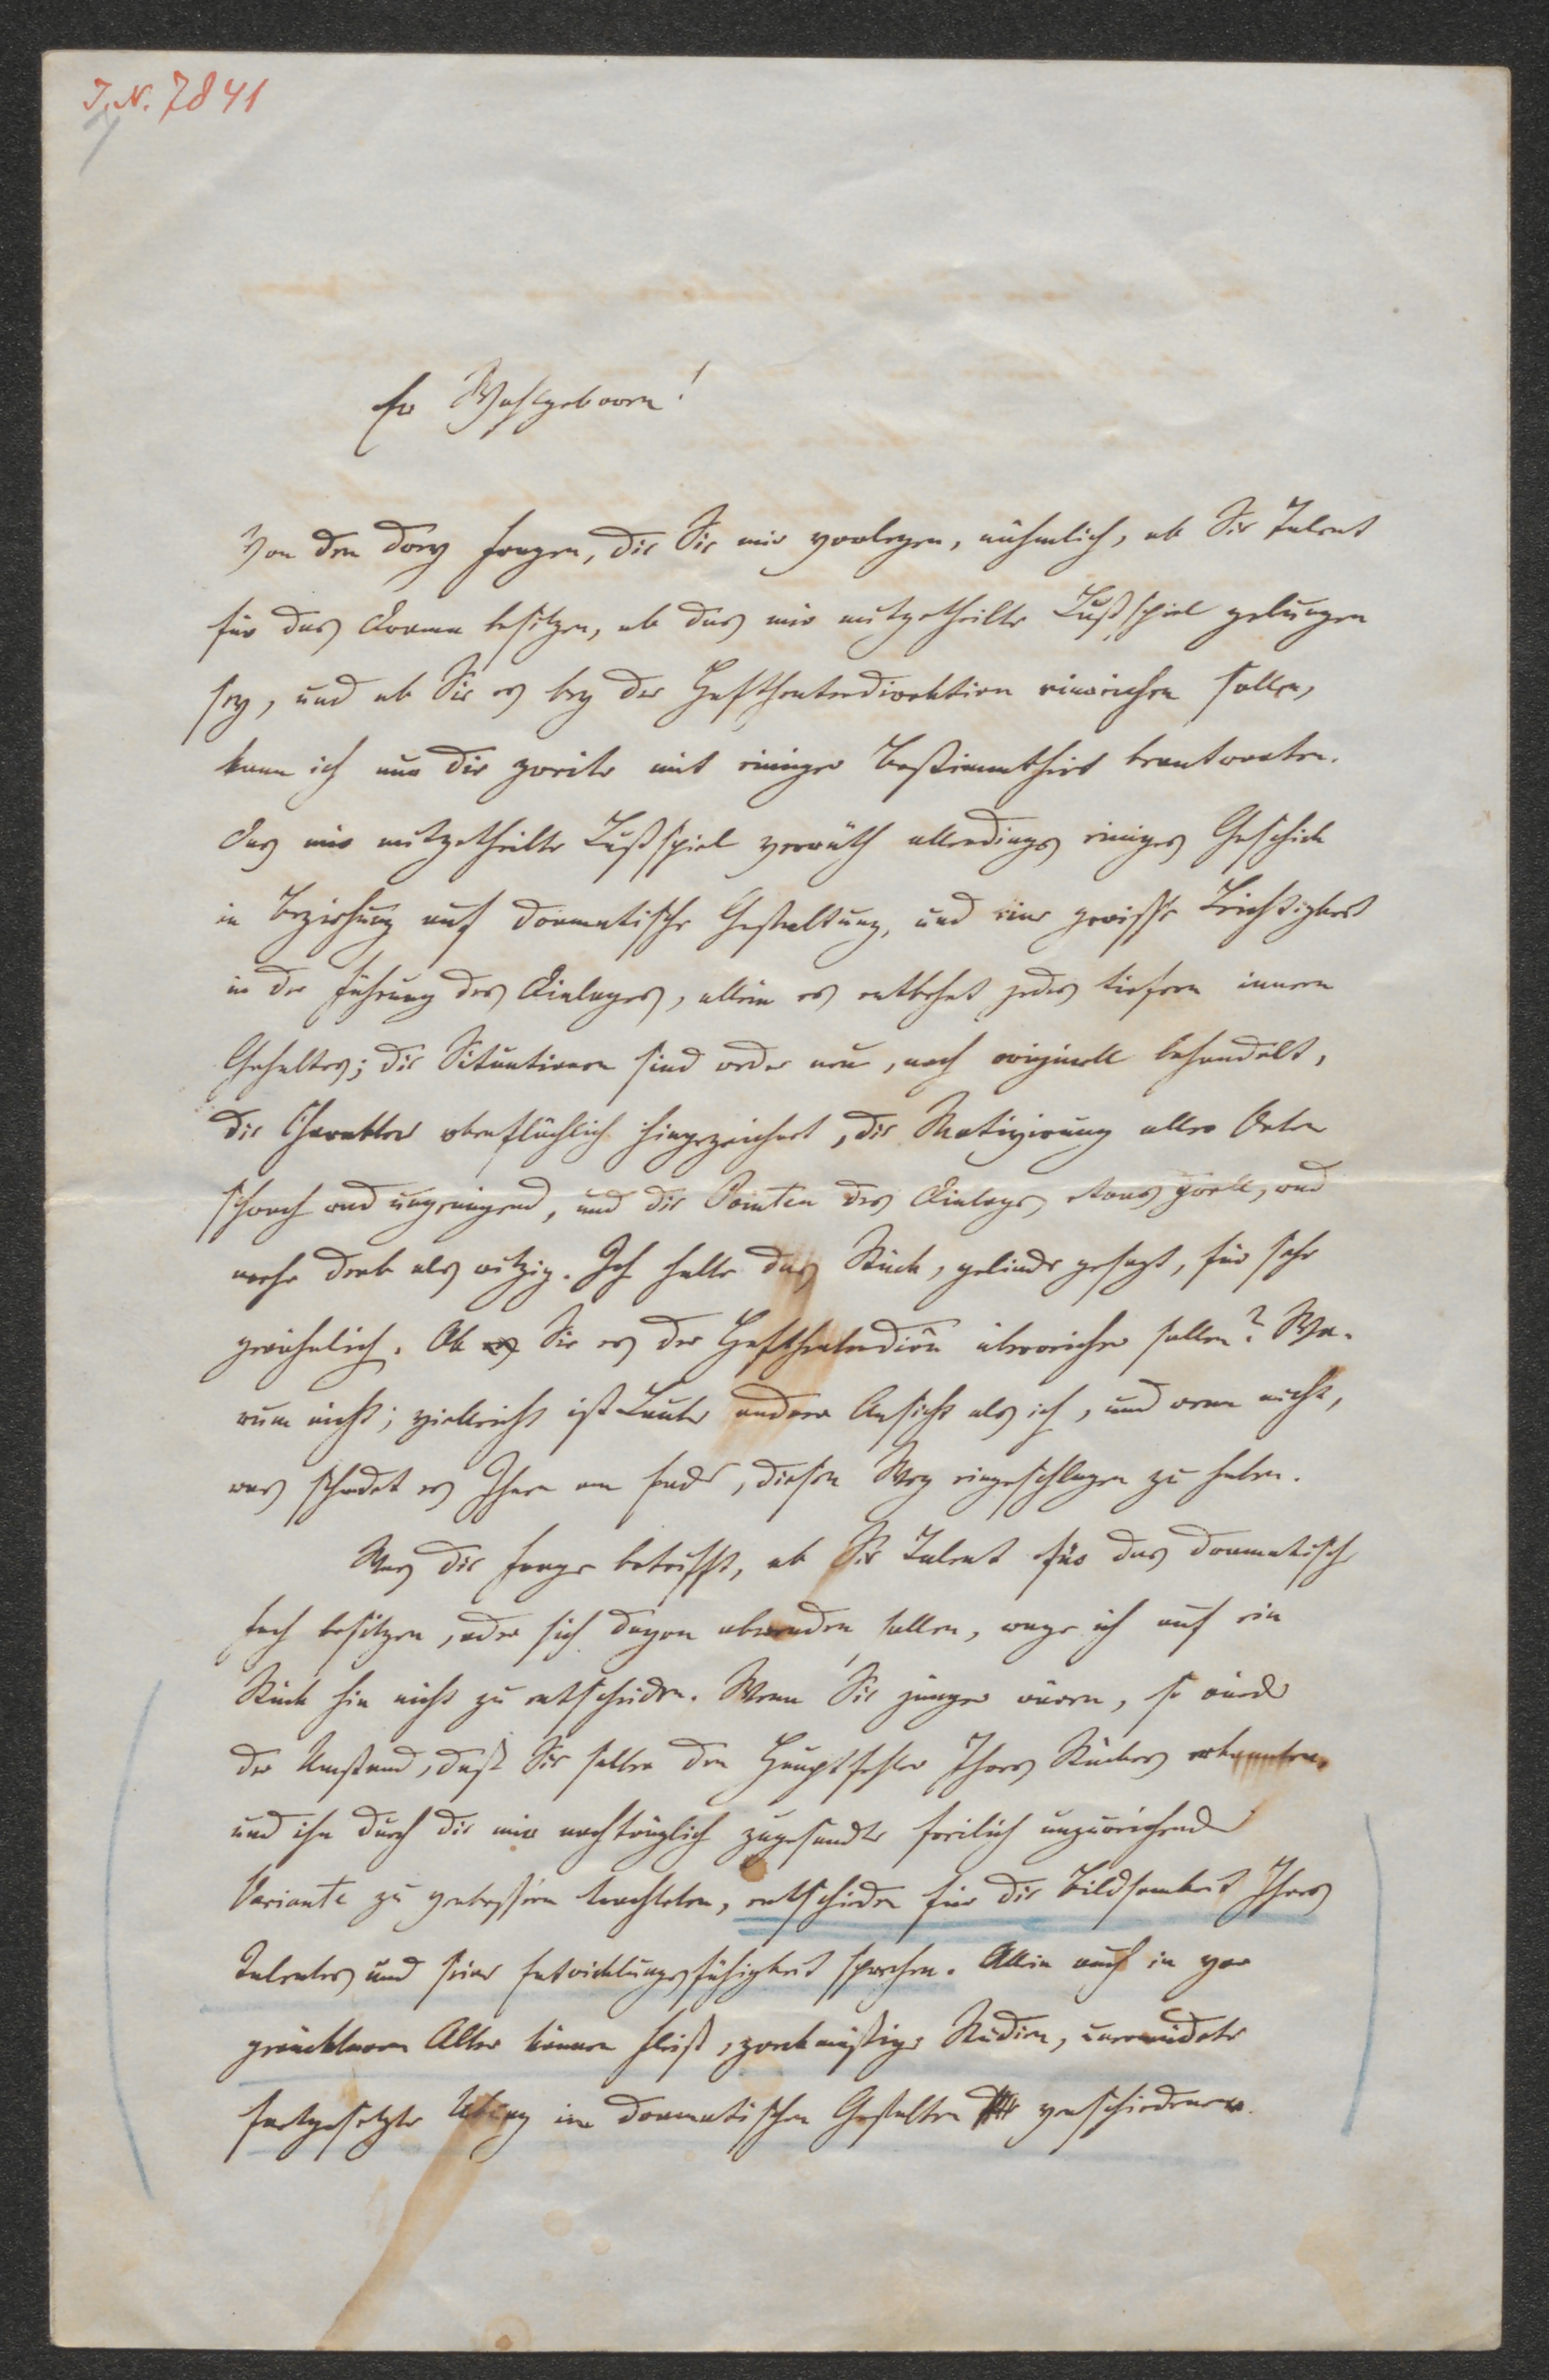 J. N. 7841
Ew Wohlgeboren!
Von den drey Fragen, die Sie mir vorlegen, nähmlich, ob Sie Talent
für das Drama besitzen, ob das mir mitgetheilte Lustspiel gelungen
sey, und ob Sie es bey der Hoftheaterdirektion einreichen sollen,
kann ich nur die zweite mit einiger Bestimmtheit beantworten.
Das mir mitgetheilte Lustspiel verräth allerdings einiges Geschick
in Beziehung auf dramatische Gestaltung, und eine gewisse Leichtigkeit
in der Führung des Dialoges, allein es entbehrt jedes tiefern innern
Gehaltes; die Situationen sind weder neu, noch originell behandelt,
die Charakter oberflächlich hingezeichnet, die Motivirung aller Orten
schwach und ungenügend, und die Pointen des Dialogs etwas grell, und
mehr derb als witzig. Ich halte das Stück, gelinde gesagt, für sehr
gewöhnlich. Ob Sie es der Hoftheaterdion überreichen sollen? Wa-
rum nicht; vielleicht ist Laube anderer Ansicht als ich, und wenn nicht,
was schadet es Ihnen am Ende, diesen Weg eingeschlagen zu haben.
Was die Frage betrifft, ob Sie Talent für das dramatische
Fach besitzen, oder sich davon abwenden sollen, wage ich auf ein
Stück hin nicht zu entscheiden. Wenn Sie jünger wären, so würde
der Umstand, daß Sie selber den Hauptfehler Ihres Stückes erkannten,
und ihn durch die mir nachträglich zugesandte freilich unzureichende
Variante zu verbessern trachteten, entschieden für die Bildsamkeit Ihres
Talentes und seine Entwicklungsfähigkeit sprechen. Allein auch in vor
gerückterem Alter können Fleiß, zweckmäßige Studien, unermüdete
fortgesetzte Übung im dramatischen Gestalten verschiedener